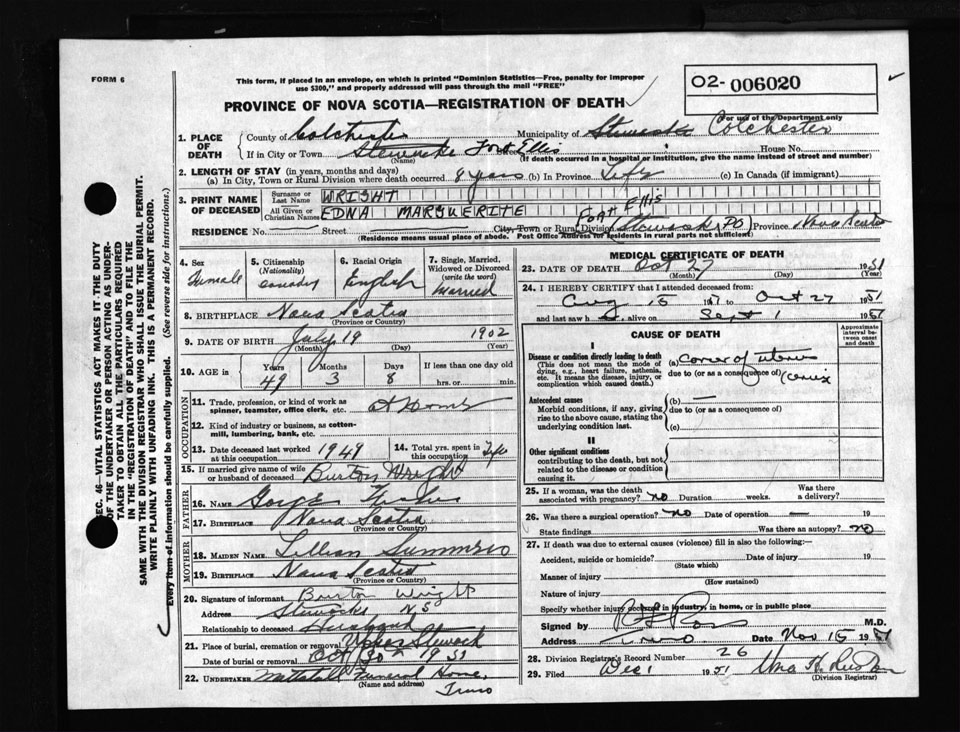 FORM 6
This form, if placed in an envelope, on which is printed "Dominion Statistics—Free, penalty for improper
use $300," and properly addressed will pass through the mail "FREE"
O2- 006020
PROVINCE OF NOVA SCOTIA—REGISTRATION OF DEATH
For use of the Department only
1. PLACE OF DEATH
County of Colchester Municipality of Stewiacke Colchester
If in City or Town Stewiacke Fort Ellis Street House No.
(Name) (If death occurred in a hospital or institution, give the name instead of street and number)
2. LENGTH OF STAY (in years, months and days)
(a) In City, Town or Rural Division where death occurred 8 years (b) In Province Life (c) In Canada (if immigrant)
3. PRINT NAME OF DECEASED
Surname or Last Name WRIGHT
All Given or Christian Names EDNA MARGUERITE
RESIDENCE No. Street City, Town or Rural Division Fort Ellis Stewiacke PO Province Nova Scotia
(Residence means usual place of abode. Post Office Address for residents in rural parts not sufficient)
4. Sex Female
5. Citizenship (Nationality) Canadian
6. Racial Origin English
7. Single, Married, Widowed or Divorced (write the word) Married
8. BIRTHPLACE Nova Scotia
(Province or Country)
9. DATE OF BIRTH July 19 1902
(Month) (Day) (Year)
10. AGE Years 49 Months 3 Days 8 If less than one day old hrs. or min.
OCCUPATION
11. Trade, profession, or kind of work as spinner, teamster, office clerk, etc. At Home
12. Kind of industry or business, as cotton-mill, lumbering, bank, etc.
13. Date deceased last worked at this occupation 1949
14. Total yrs. spent in this occupation Life
15. If married give name of wife or husband of deceased Burton Wright
FATHER
16. NAME George
17. BIRTHPLACE Nova Scotia
(Province or Country)
MOTHER
18. MAIDEN NAME Lillian
19. BIRTHPLACE Nova Scotia
(Province or Country)
20. Signature of informant Burton Wright
Address Stewiacke N S
Relationship to deceased Husband
21. Place of burial, cremation or removal Upper Stewiack
Date of burial or removal Oct 30th 1951
22. UNDERTAKER Mattatall Funeral Home,
(Name and address) Truro
MEDICAL CERTIFICATE OF DEATH
23. DATE OF DEATH Oct 27 1951
(Month) (Day) (Year)
24. I HEREBY CERTIFY that I attended deceased from:
Aug 15 to Oct 27 1951
and last saw h alive on Sept 1 1951
CAUSE OF DEATH
Approximate interval between onset and death
I
Disease or condition directly leading to death
(This does not mean the mode of dying, e.g., heart failure, asthenia, etc. It means the disease, injury, or complication which caused death.)
(a) Cancer of uterus
due to (or as a consequence of) (cervix
Antecedent causes
Morbid conditions, if any, giving rise to the above cause, stating the underlying condition last.
(b) —
due to (or as a consequence of)
(c)
II
Other significant conditions
contributing to the death, but not related to the disease or condition causing it.
25. If a woman, was the death associated with pregnancy? no Duration weeks. Was there a delivery?
26. Was there a surgical operation? no Date of operation — 19
State findings Was there an autopsy? no
27. If death was due to external causes (violence) fill in also the following:—
Accident, suicide or homicide? Date of injury 19
(State which)
Manner of injury
(How sustained)
Nature of injury
Specify whether injury occurred in industry, in home, or in public place
Signed by Ross M.D.
Address Truro Date Nov 15 1951
28. Division Registrar's Record Number 26
29. Filed Dec 1 1951
(Division Registrar)
SEC. 46—VITAL STATISTICS ACT MAKES IT THE DUTY
OF THE UNDERTAKER OR PERSON ACTING AS UNDER-
TAKER TO OBTAIN ALL THE PARTICULARS REQUIRED
IN THE "REGISTRATION OF DEATH" AND TO FILE THE
SAME WITH THE DIVISION REGISTRAR WHO SHALL ISSUE THE BURIAL PERMIT.
WRITE PLAINLY WITH UNFADING INK. THIS IS A PERMANENT RECORD.
Every item of information should be carefully supplied. (See reverse side for instructions.)